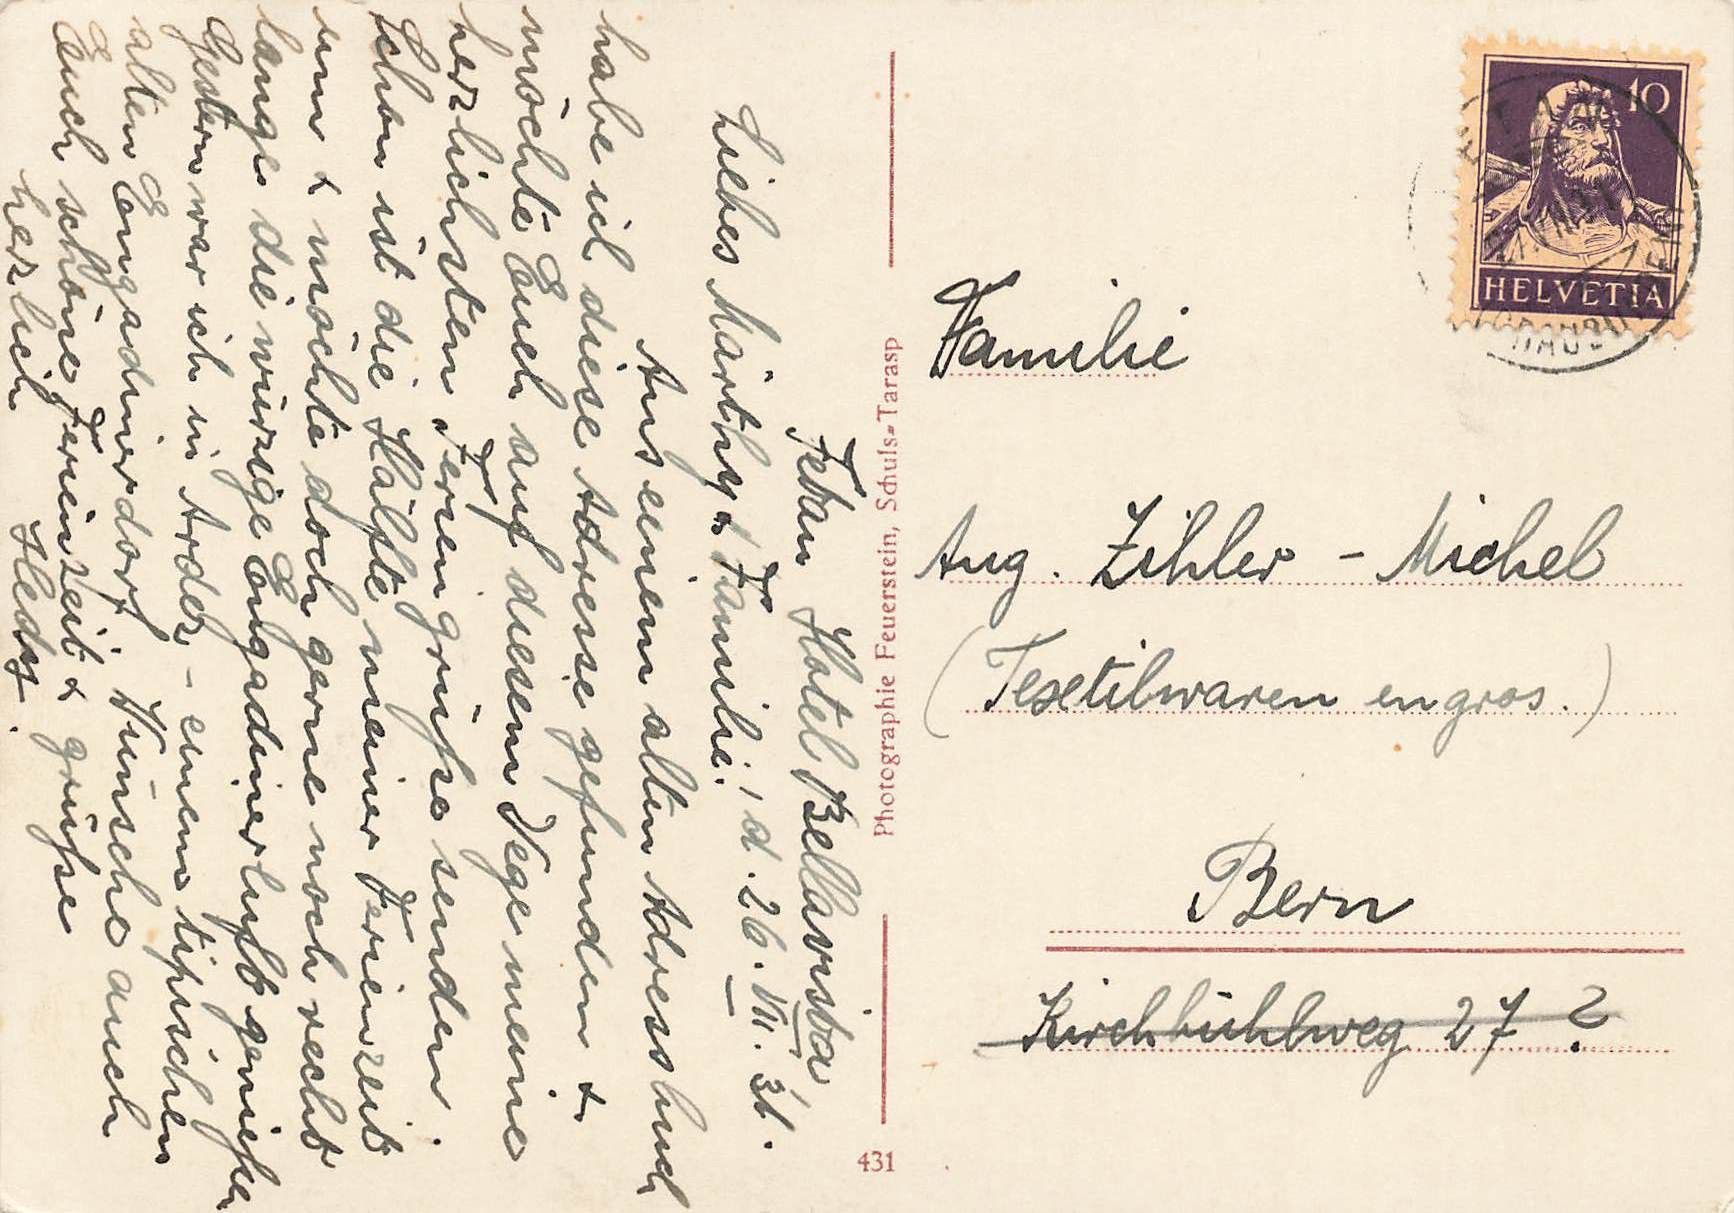 Fetan Hotel Bellavista
, d. 26. VII. 31.
Liebes Märthy & Familie.
Aus einem alten Adressbuch
habe ich diese Adresse gefunden &
möchte Euch auf diesem Wege meine
herzlichsten Feriengrüsse senden.
Schon ist die Hälfte meiner Ferienzeit
um & möchte doch gerne noch recht
lange die würzige Engadinerluft geniessen
Gestern war ich in Ardez, - einem typischen
alten Engadinerdorf. Wünsche auch
Euch schöne Ferienzeit & grüsse
herzlich Hedy.
Photographie Feuerstein, Schuls-Tarasp
431
10
HELVETIA
Familie
Aug. Zihler - Michel
(Textilwaren en gros.)
Bern
Kirchbühlweg 27 ?